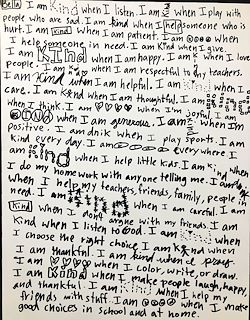 Bella I am Kind when I listen. I am when I play with
people who are sad. I am kind when I help someone who is
hurt. I am kind when I am patient. I am when
I help someone in need. I am kind when I give.
I am Kind when I am happy. I am when I love
people. I am when I am respectful to my teachers.
I am Kind when I am helpful. I am kind when I
care. I am kind when I am thoughtful. I am Kind
when I think. I am when I'm joyful. I am
KIND when I am generous. I am when I'm
positive. I am dnik when I play sports. I am
kind every day. I am everywhere. I
am Kind when I help little kids. I am Kind when
I do my homework with anyone telling me. I am
when I help my teachers, friends, family, people in
need. I am when I am careful. I am
Kind when I don't argue with my friends. I am
Kind when I listen to God. I am when
I choose the right choice. I am kind when
I am thankful. I am kind when I pray.
I am when I color, write, or draw.
I am Kind when I make people laugh, happy,
and thankful. I am when I help my
friends with stuff. I am when I make
good choices in school and at home.